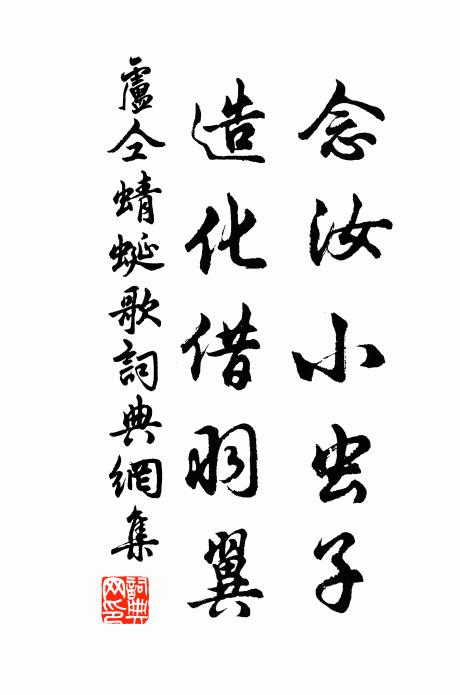 念汝小虫子
造化借羽翼
盧仝蜻蜓歌詞典網集
詞典网印